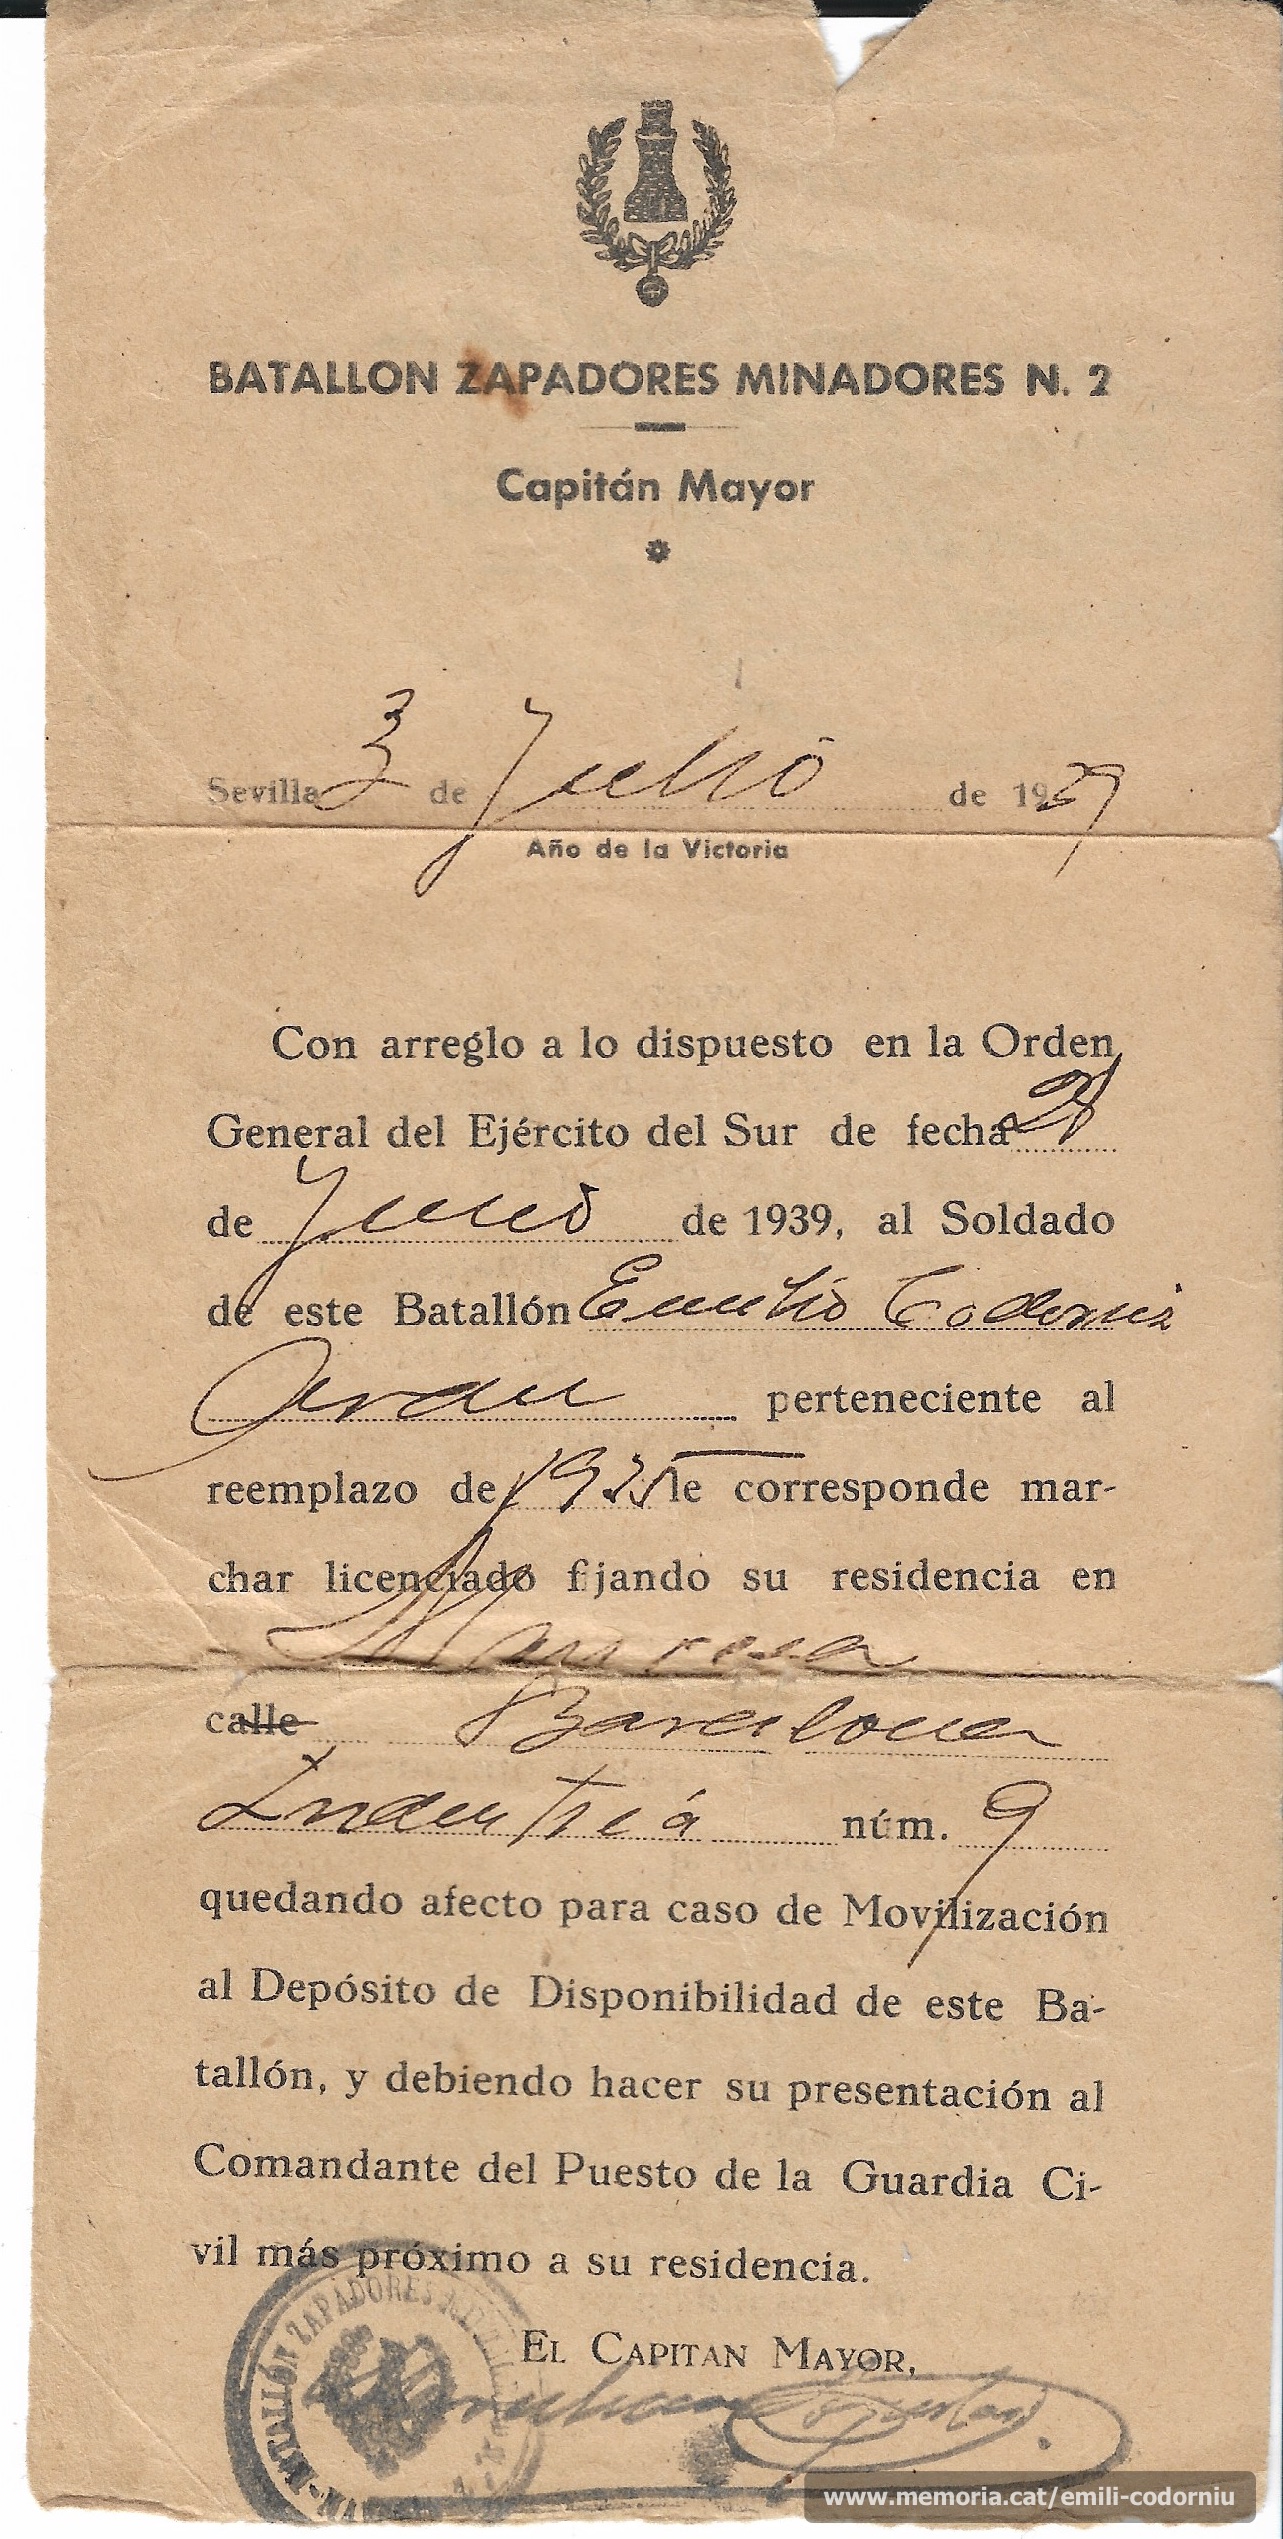 BATALLON ZAPADORES MINADORES N. 2
Capitán Mayor
Sevilla 3 de Julio de 1939
Año de la Victoria
Con arreglo a lo dispuesto en la Orden
General del Ejército del Sur de fecha 28
de Junio de 1939, al Soldado
de este Batallón Emilio Codorniu
Arau perteneciente al
reemplazo de 1935 le corresponde mar-
char licenciado fijando su residencia en
Manresa
calle Barcelona
Industria núm. 9
quedando afecto para caso de Movilización
al Depósito de Disponibilidad de este Ba-
tallón, y debiendo hacer su presentación al
Comandante del Puesto de la Guardia Ci-
vil más próximo a su residencia.
EL CAPITAN MAYOR,
BATALLÓN ZAPADORES
www.memoria.cat/emili-codorniu